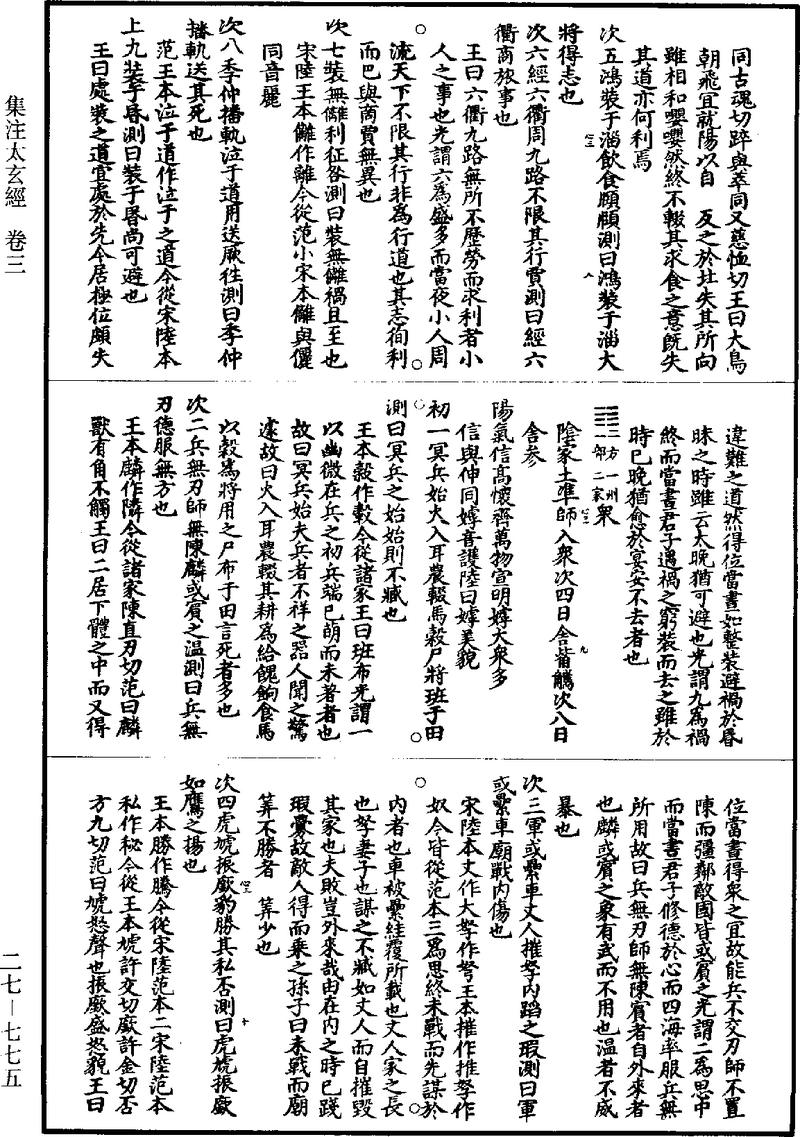 集注太玄經　卷三
二七—七七五
同古魂切踤與萃同又慈恤切王曰大鳥
朝飛宜就陽以自　反之於壯失其所向
雖相和嚶嚶然終不輟其求食之意既失
其道亦何利焉
次五鴻裝于淄飲食頤頤測曰鴻裝于淄大
將得志也
次六經六衢周九路不限其行賈測曰經六
衢商旅事也
王曰六衢九路無所不歷勞而求利者小
人之事也光謂六為盛多而當夜小人周
流天下不限其行非為行道也其志徇利
而已與商賈無異也
次七裝無儷利征咎測曰裝無儷禍且至也
宋陸王本儷作離今從范小宋本儷與儷
同音麗
次八季仲播軌泣于道用送厥往測曰季仲
播軌送其死也
范王本泣于道作泣于之道今從宋陸本
上九裝于昏測曰裝于昏尚可避也
王曰處裝之道宜處於先今居極位頗失
違難之道然得位當晝如整裝避禍於昏
昧之時雖云太晚猶可避也光謂九為禍
終而當晝君子遇禍之窮裝而去之雖於
時已晚猶愈於宴安不去者也
三方一州一部二家衆
陰家土準師入衆次四日舍觜觿次八日
舍參
陽氣信高懷齊萬物宣明嫭大衆多
信與伸同嫭音護陸曰嫭美貌
初一冥兵始火入耳農輟馬穀尸將班于田
測曰冥兵之始始則不臧也
王本穀作轂今從諸家王曰班布光謂一
以幽微在兵之初兵端已萌而未著者也
故曰冥兵始夫兵者不祥之器人聞之驚
遽故曰火入耳農輟其耕為給餽餉食馬
以穀為將用之尸布于田言死者多也
次二兵無刃師無陳麟或賓之溫測曰兵無
刃德服無方也
王本麟作隣今從諸家陳直刃切范曰麟
獸有角不觸王曰二居下體之中而又得
位當晝得衆之宜故能兵不交刃師不置
陳而彊鄰敵國皆或賓之光謂二為思中
而當晝君子修德於心而四海率服兵無
所用故曰兵無刃師無陳賓者自外來者
也麟或賓之象有武而不用也溫者不威
暴也
次三軍或纍車丈人摧孥內蹈之瑕測曰軍
或纍車廟戰內傷也
宋陸本丈作大孥作弩王本摧作推孥作
奴今皆從范本三為思終未戰而先謀於
內者也車被纍絓覆所載也丈人家之長
也孥妻子也謀之不臧如丈人而自摧毀
其家也夫敗豈外來哉由在內之時已踐
瑕釁故敵人得而乘之孫子曰未戰而廟
筭不勝者　筭少也
次四虎虓振廞豹勝其私否測曰虎虓振廞
如鷹之揚也
王本勝作騰今從宋陸范本二宋陸范本
私作秘今從王本虓許交切廞許金切否
方九切范曰虓怒聲也振廞盛怒貌王曰